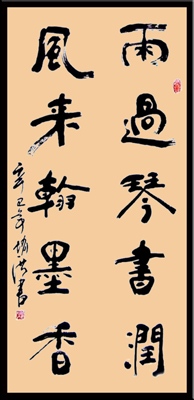 雨過琴書潤
風来翰墨香
辛巳年 洪書